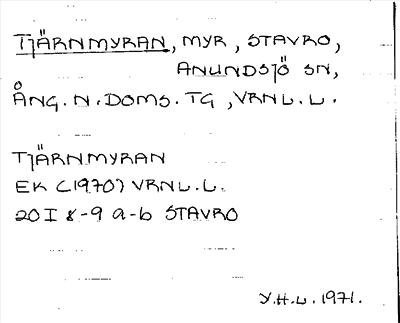 TJÄRNMYRAN, MYR, STAVRO,
ANUNDSJÖ SN,
ÅNG. N. DOMS. TG, VRNL.L.
TJÄRNMYRAN
EK (1970) VRNL.L.
20I 8-9 a-b STAVRO
Y.H.L. 1971.